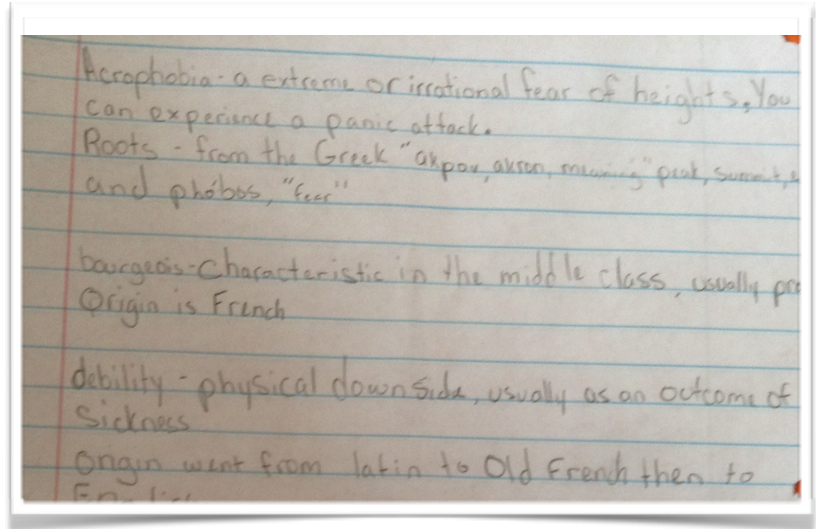 Acrophobia - a extreme or irrational fear of heights. You
can experience a panic attack.
Roots - from the Greek "akpov, akron, meaning" peak, summit,
and phóbos, "fear"
bourgeois - Characteristic in the middle class, usually
Origin is French
debility - physical downside, usually as an outcome of
Sickness
origin went from latin to Old French then to